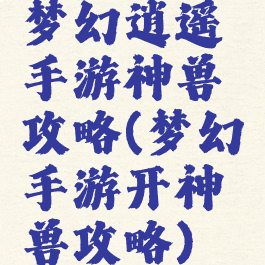 梦幻逍遥
手游神兽
攻略(梦幻
手游开神
兽攻略)